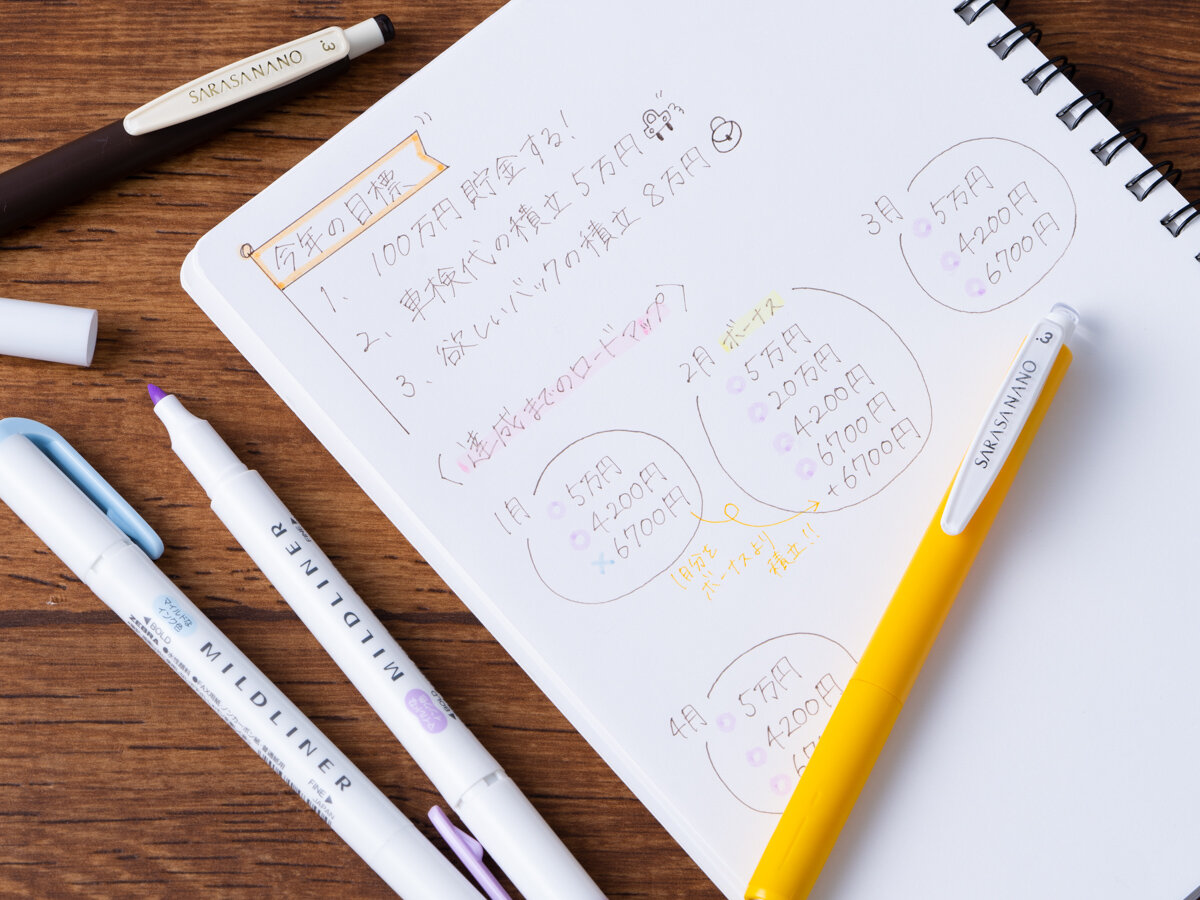 今年の目標
1、 100万円 貯金する!
2、 車検代の積立 5万円
3、 欲しいバックの積立 8万円
達成までのロードマップ
1月
5万円
4200円
× 6700円
1月分を
ボーナスより
積立!!
2月 ボーナス
5万円
20万円
4200円
6700円
+6700円
3月
5万円
4200円
6700円
4月
5万円
4200円
SARASA NANO
0.3
SARASA NANO
0.3
MILDLINER
FINE
BOLD
マイルドな
インク色
BOLD
ZEBRA
MILDLINER
FINE
JAPAN